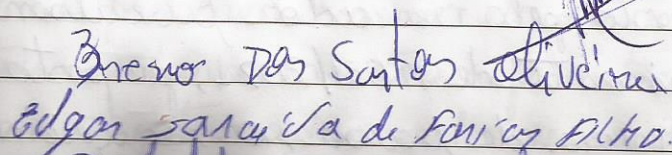 Brenor Dos Santos Oliveira
Edgar Saraiva de Farias Filho